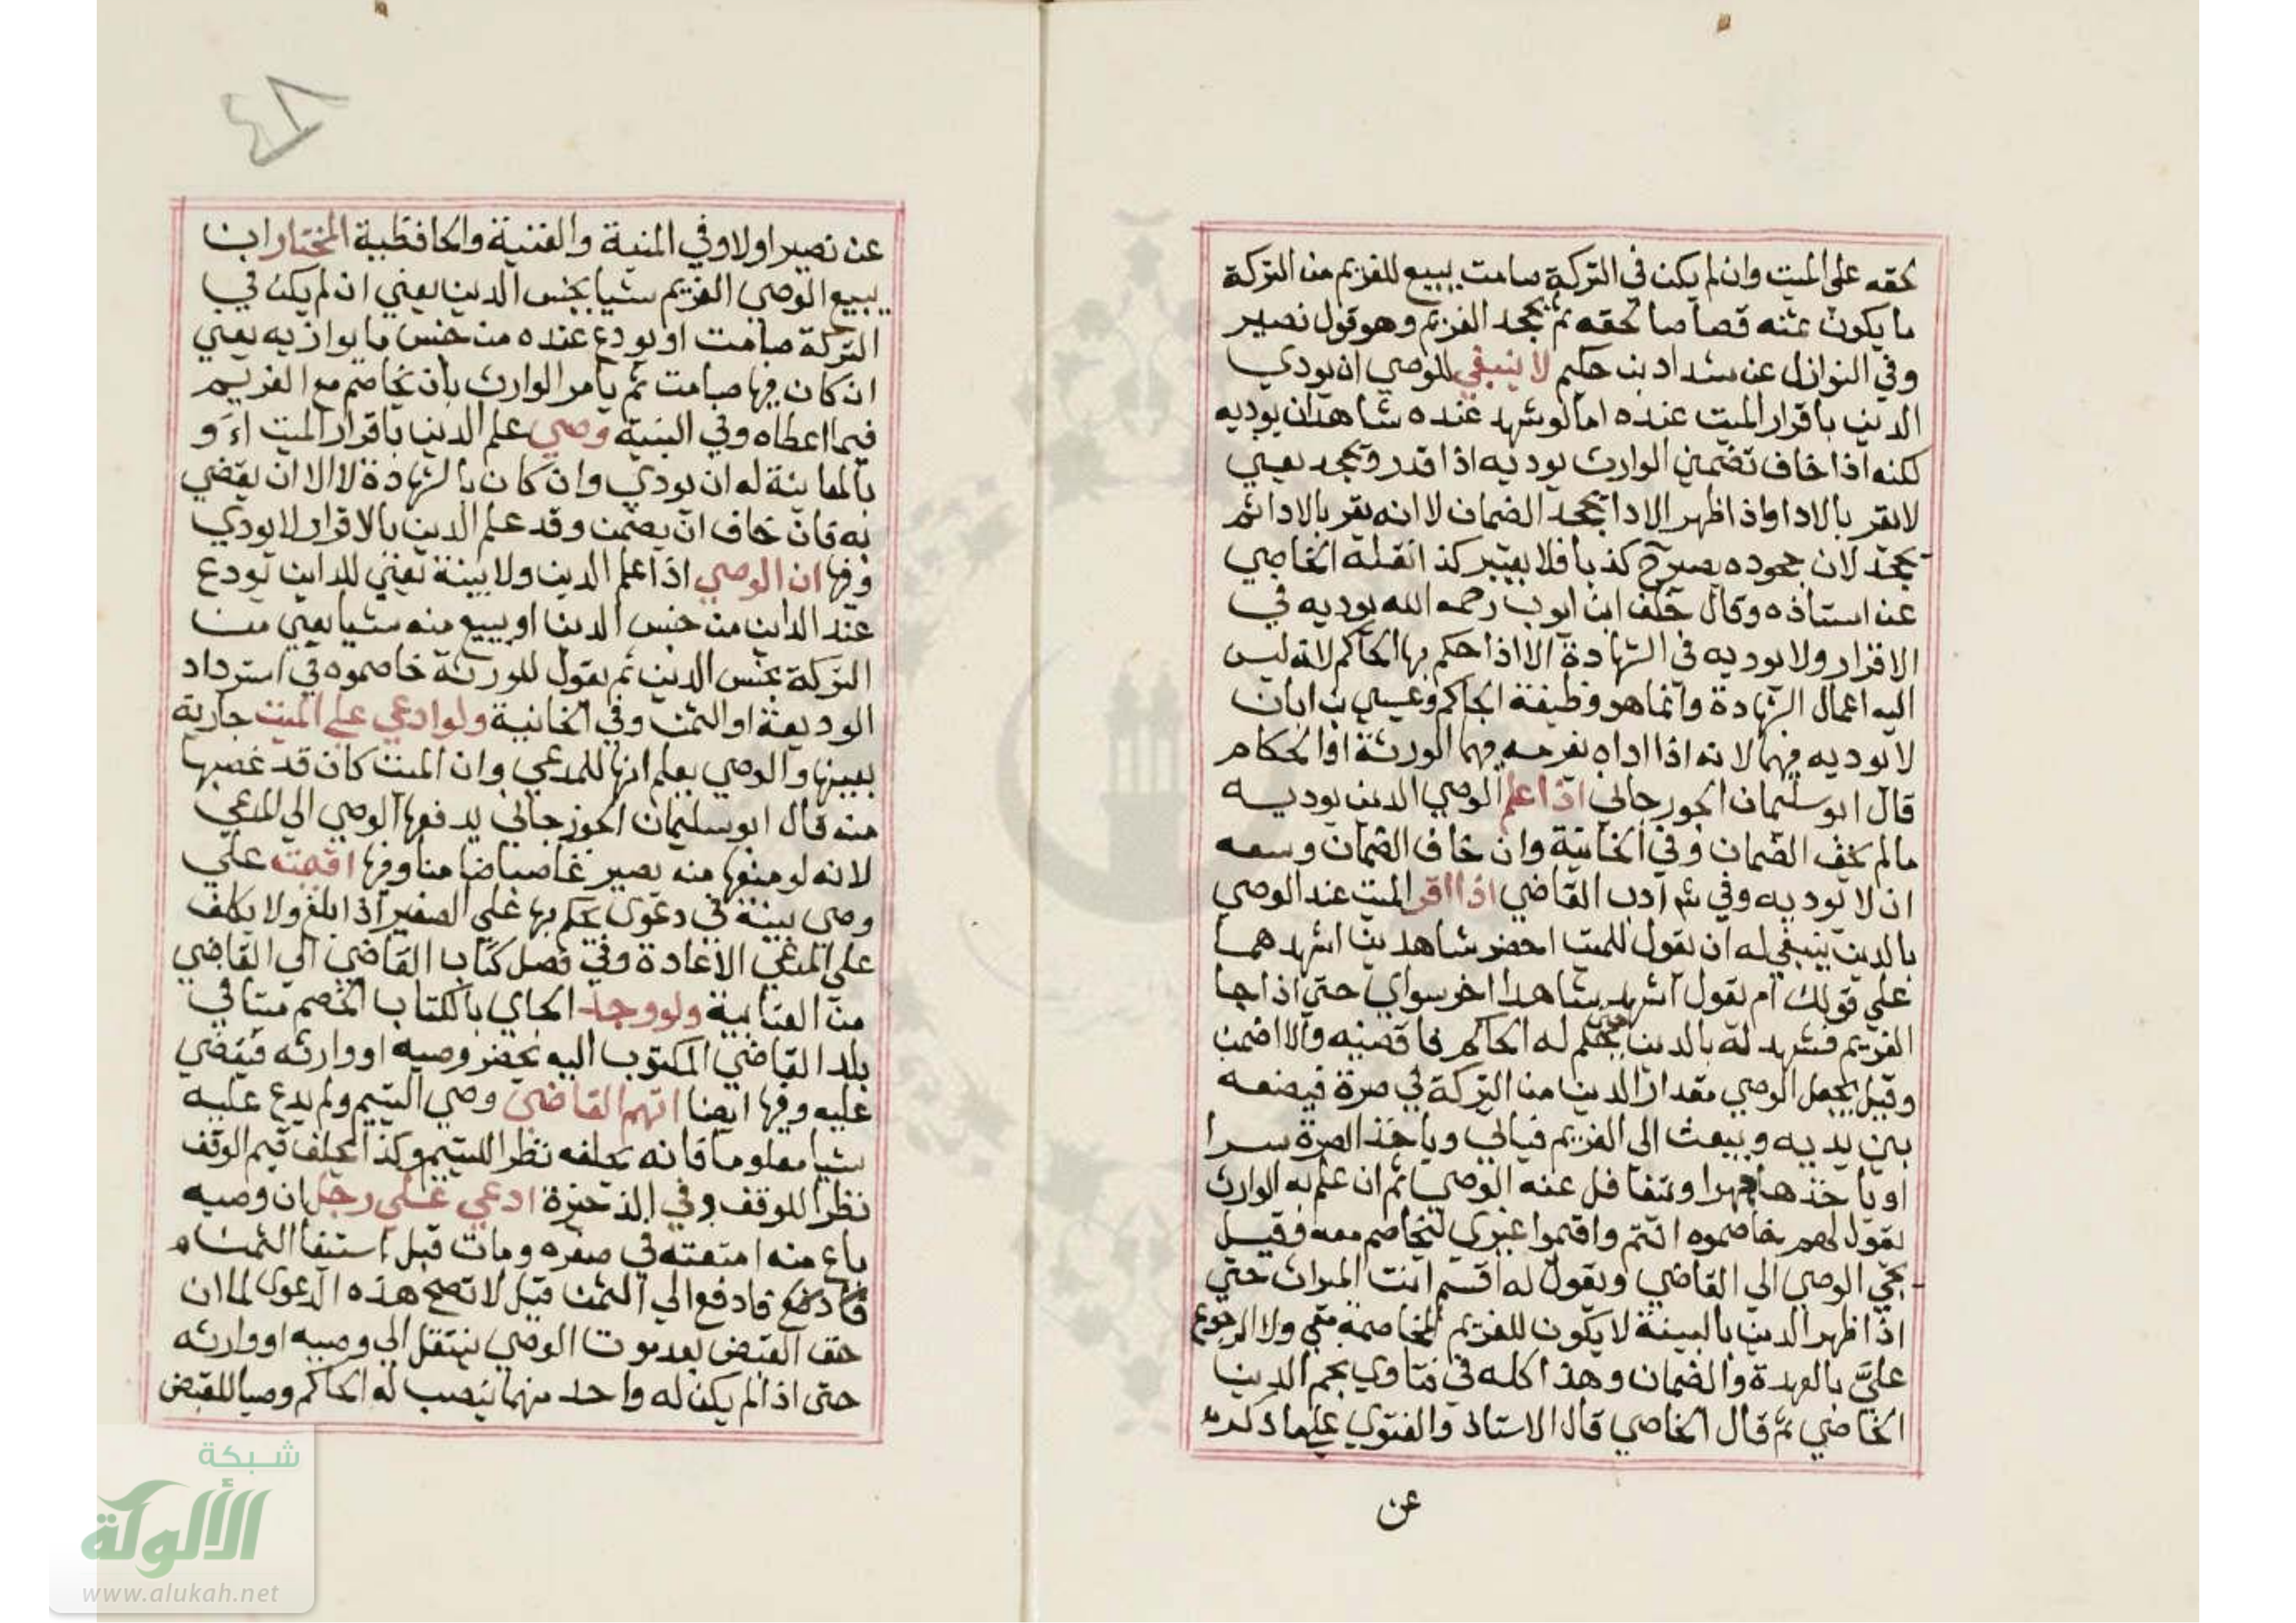 لحقه على الميت وان لم يكن في التركة صامت يبيع للغريم من التركة
ما يكون ثمنه قصاصا لحقه ثم يجحد الغريم وهو قول نصير
وفي النوازل عن شداد بن حكيم لا ينبغي للوصي ان يودي
الدين باقرار الميت عنده اما لو شهد عنده شاهدان يوديه
لكنه اذا خاف تضمين الوارث يوديه اذا قدر ويجحد يعني
لا يقر بالادا واذا ظهر الادا يجحد الضمان لا انه يقر بالادا ثم
يجحد لان جحوده يصير ح كذبا فلا يعتبر كذا نقله الخاصي
عن استاذه وقال خلف ابن ايوب رحمه الله يوديه في
الاقرار ولا يوديه في الشهادة الا اذا حكم بها الحاكم لانه ليس
اليه اعمال الشهادة وانما هو وظيفة الحاكم وعيسي بن ابان
لا يوديه فيهما لانه اذا اداه يغرمه فيهما الورثة او الحكام
قال ابو سليمان الجوزجاني اذا علم الوصي الدين يوديه
مالم يخف الضمان وفي الخانية وان خاف الضمان وسعه
ان لا يوديه وفي شر ادب القاضي اذا اقر الميت عند الوصي
بالدين ينبغي له ان يقول للميت احضر شاهدين اشهدهما
على قولك ام يقول اشهد شاهدا اخر سواي حتي اذا جا
الغريم فشهد له بالدين حتي يحكم له الحاكم فاقضيه والا اضمن
وقيل يجعل الوصي مقدار الدين من التركة في صرة فيضعه
بين يديه ويبعث الى الغريم فياتي وياخذ الصرة سرا
او ياخذها جهرا ويتغافل عنه الوصي ثم ان علم به الوارث
يقول لهم خاصموه انتم واقيموا غيري ليخاصم معه وقيل
يجي الوصي الي القاضي ويقول له اقسم انت الميراث حتي
اذا ظهر الدين بالبينة لا يكون للغريم المخاصمة معي ولا الرجوع
عليَّ بالعهدة والضمان وهذا كله في فتاوي نجم الدين
الخاصي ثم قال الخاصي قال الاستاذ والفتوي علي ما ذكره
عن
عن نصير اولا وفي المنية والغنية والحافظية المختار ان
يبيع الوصي الغريم شيا بجنس الدين يعني ان لم يكن في
التركة صامت او يودع عنده من جنس ما يوازيه يعني
ان كان فيها صامت ثم يامر الوارث بان يخاصم مع الغريم
فيما اعطاه وفي وصي علم الدين باقرار الميت او
بالمعاينة له ان يودي وان كان بالشهادة لا الا ان يقضي
به فان خاف ان يضمن وقد علم الدين بالاقرار لا يودي
وفيها ان الوصي اذا علم الدين ولا بينة يعني للداين يودع
عند الداين من جنس الدين او يبيع منه شيا يعني من
التركة بجنس الدين ثم يقول للورثة خاصموه في استرداد
الوديعة او الثمن وفي الخانية ولو ادعي علي الميت جارية
بعينها والوصي يعلم انها للمدعي وان الميت كان قد غصبها
منه قال ابو سليمان الجوزجاني يدفعها الوصي الي المدعي
لانه لو منعها منه يصير غاصبا ضامنا وفيها اقيمت علي
وصي بينة في دعوى يحكم بها علي الصغير اذا بلغ ولا يكلف
على المدعي الاعادة وفي فصل كتاب القاضي الي القاضي
من العتابية ولو وجد الجاي بالكتاب الخصم ميتا في
بلد القاضي المكتوب اليه يحضر وصيه او وارثه فيقضي
عليه وفيها ايضا اتهم القاضي وصي اليتيم ولم يدع عليه
شيا معلوما فانه يحلفه نظرا لليتيم وكذا يحلف قيم الوقف
نظرا للوقف وفي الذخيرة ادعي على رجل ان وصيه
باع منه امتعته في صغره ومات قبل استيفا الثمن
فادفع الي الثمن قيل لا تصح هذه الدعوى لما ان
حق القبض بعد موت الوصي ينتقل الي وصيه او وارثه
حتى اذا لم يكن له واحد منهما ينصب له الحاكم وصيا للقبض
شبكة
الألوكة
www.alukah.net